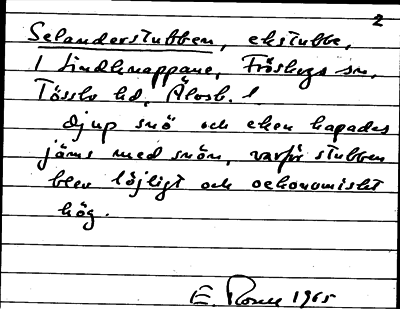 2
Selanderstubben, ekstubbe,
i Lindknappane, Fröskogs sn,
Tössbo hd, Älvsb. l
djup snö och eken kapades
jäms med snön, varför stubben
blev löjligt och oekonomiskt
hög.
E. 1965